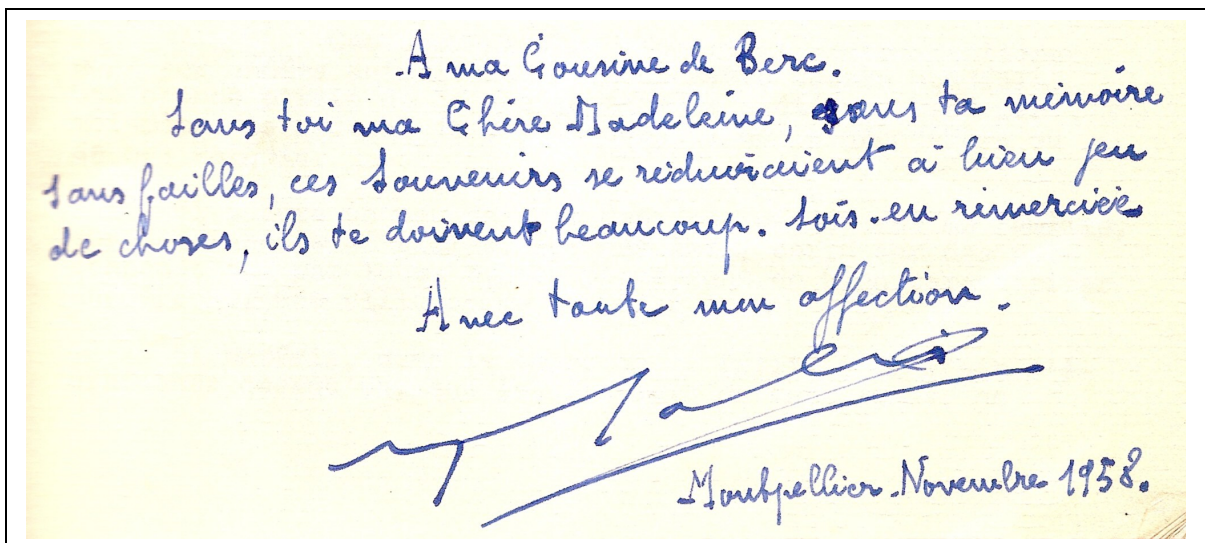 A ma Cousine de Berc.
Sans toi ma Chère Madeleine, sans ta mémoire
sans failles, ces souvenirs se réduiraient à bien peu
de choses, ils te doivent beaucoup. Sois-en remerciée
Avec toute mon affection.
Montpellier. Novembre 1958.